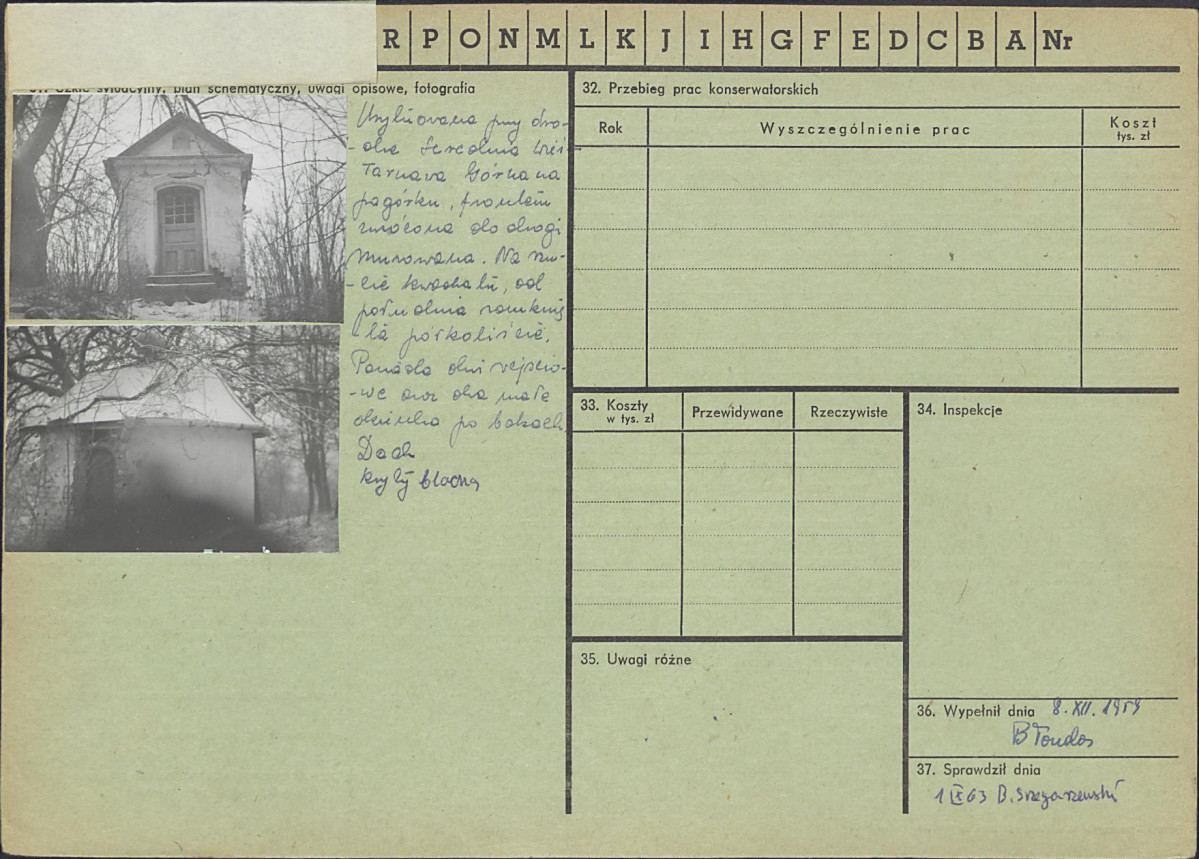 R P O N M L K J I H G F E D C B A Nr
31. Szkic sytuacyjny, plan schematyczny, uwagi opisowe, fotografia
Usytuowana przy dro-
-dze Szczelna wieś
Tarnawa Górna na
pagórku, frontem
zwrócona do drogi
Murowana. Na rzu-
-cie kwadratu, od
południa zamknię
-ta półkoliście.
Posiada drzwi wejścio-
-we oraz dwa małe
okienka po bokach
Dach
kryty blachą
32. Przebieg prac konserwatorskich
Rok
Wyszczególnienie prac
Koszt
tys. zł
33. Koszty
w tys. zł
Przewidywane
Rzeczywiste
34. Inspekcje
35. Uwagi różne
36. Wypełnił dnia 8.XII.1959
37. Sprawdził dnia
1 IX 63 B.